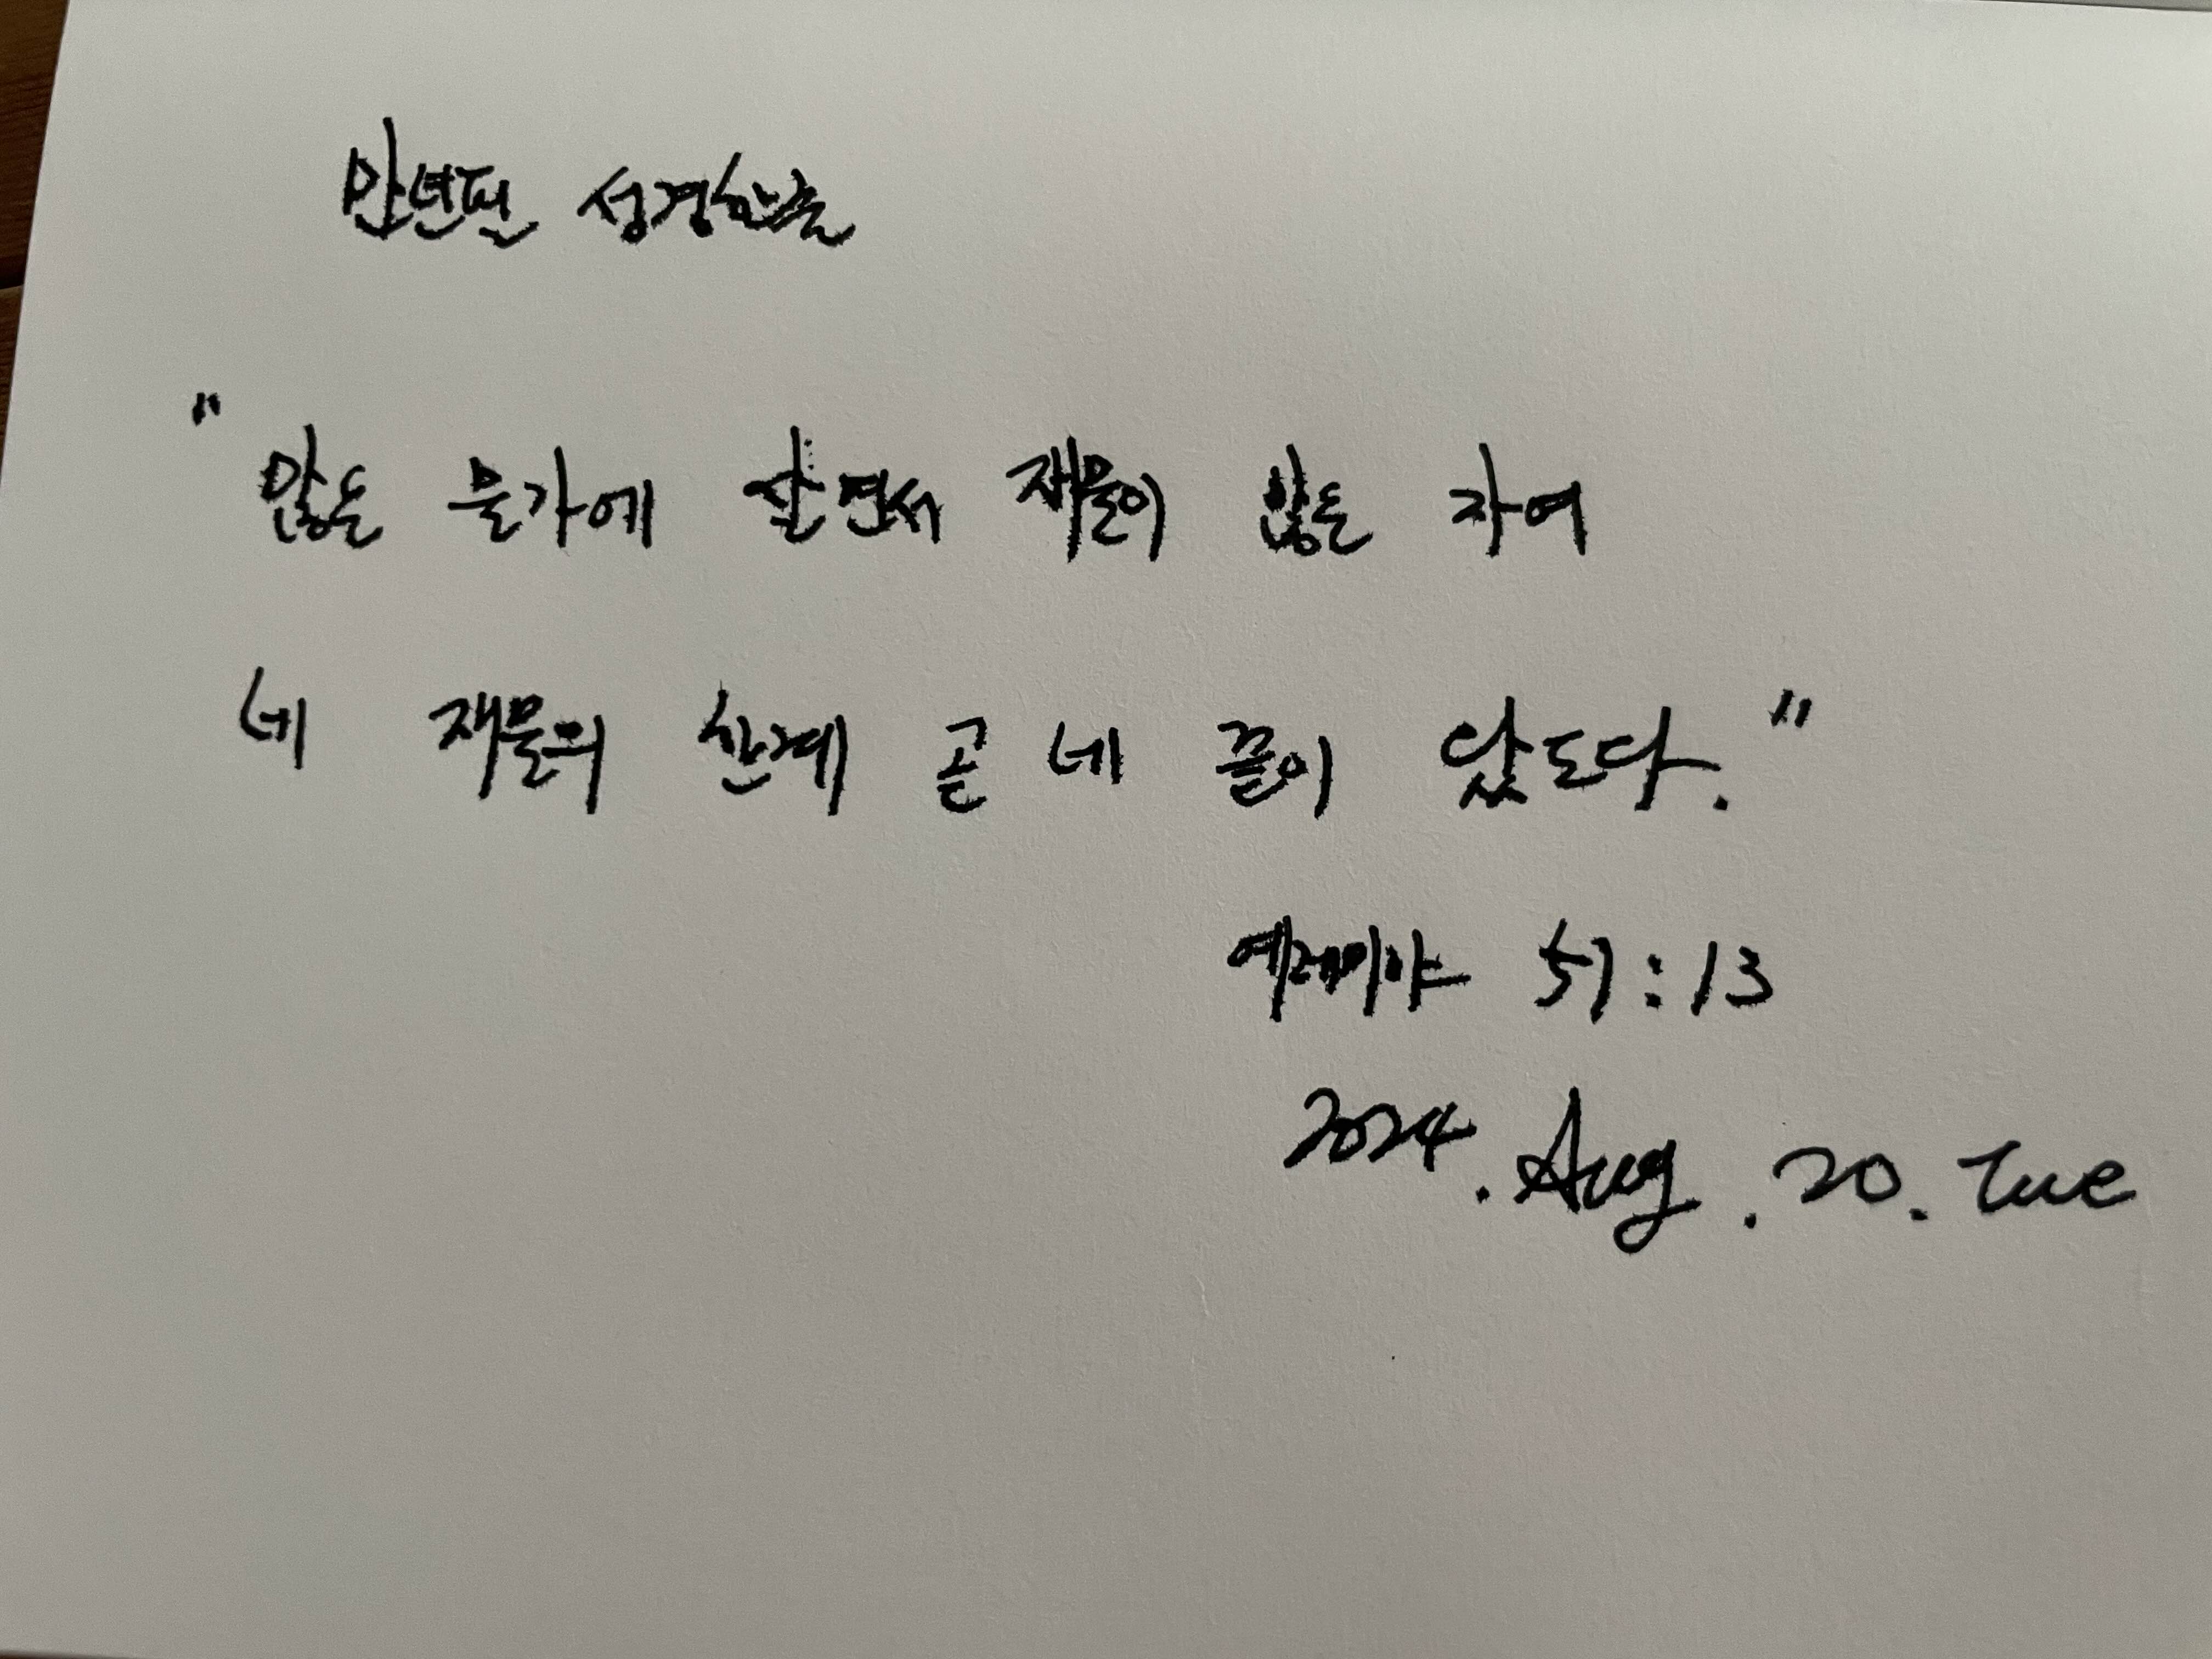 만년펜 성경한줄
"많은 물가에 살면서 재물이 많은 자여
네 재물의 한계 곧 네 끝이 왔도다."
예레미야 51:13
2024. Aug. 20. Tue